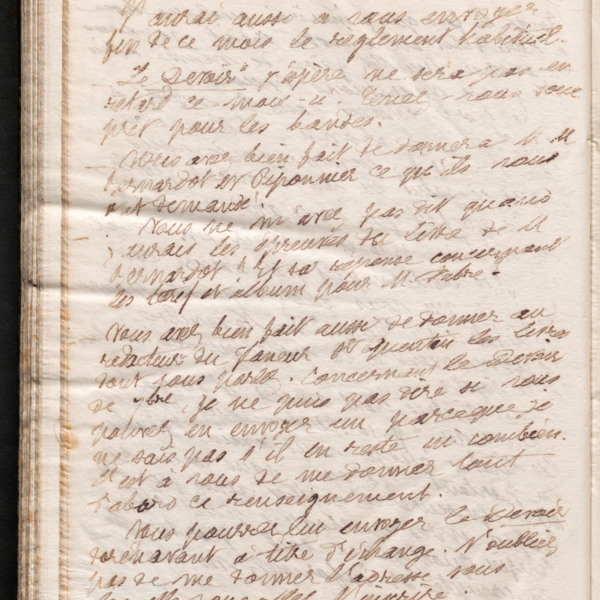 J'aurai aussi à vous envoyer
fin de ce mois le règlement habituel.
"Le Devoir" j'espère ne sera pas en
retard ce mois-ci. tenez-vous
prêt pour les bandes.
Vous avez bien fait de donner à M. M
Bernardot et Déponnier ce qu'ils vous
ont demandé.
Vous ne m'avez pas dit quand
j'aurais les épreuves du livre de M
Bernardot & Et sa réponse concernant
les et album pour M. Fabre.
Vous avez bien fait aussi de donner au
rédacteur du Glaneur St quentin les livres
dont vous parlez. Concernant le Devoir
de je ne puis pas dire si vous
pouvez en envoyer un parceque je
ne sais pas s'il en reste ni combien.
C'est à vous de me donner tout
d'abord ce renseignement.
Vous pourrez lui envoyer le Devoir
dorénavant à titre d'échange. N'oubliez
pas de me donner l'adresse sous